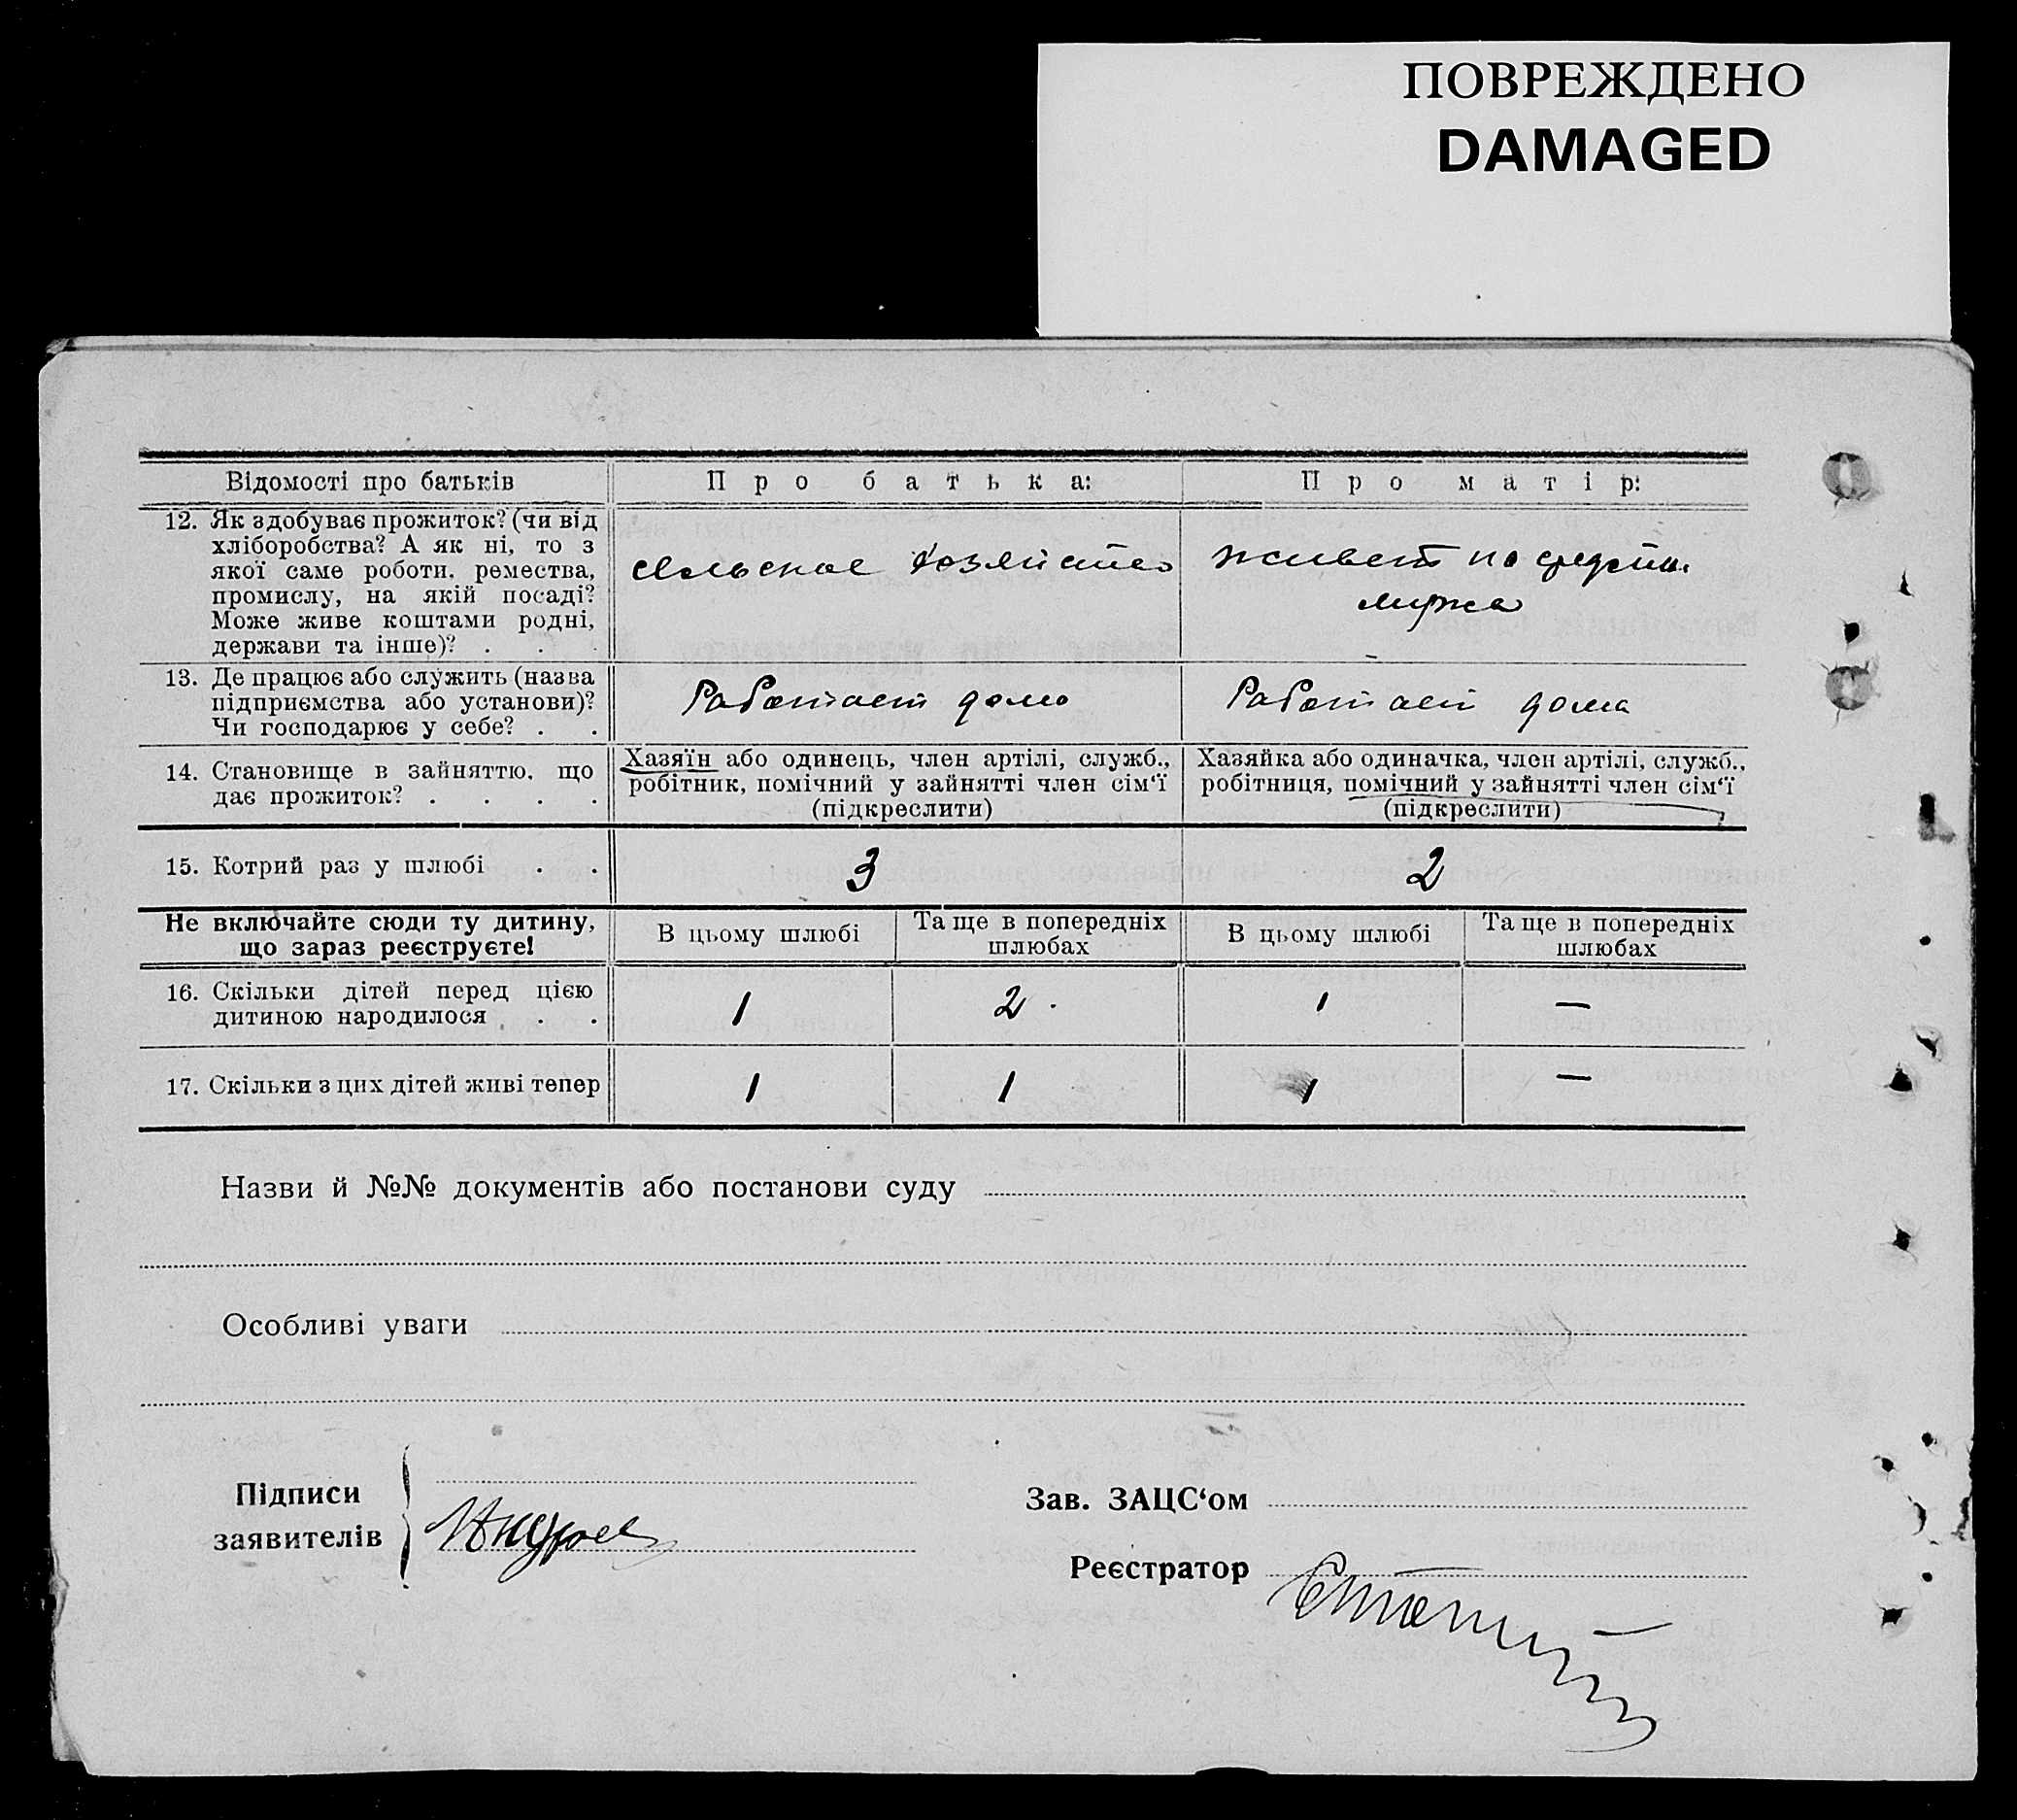 ПОВРЕЖДЕНО
DAMAGED
Відомості про батьків
Про батька:
Про матір:
12. Як здобуває прожиток? (чи від
хліборобства? А як ні, то з
якої саме роботи, ремества,
промислу, на якій посаді?
Може живе коштами родні,
держави та інше)? . . .
сельское хозяйство
живет на средтв.
мужа
13. Де працює або служить (назва
підприємства або установи)?
Чи господарює у себе? . .
Работает дома
Работает дома
14. Становище в зайняттю, що
дає прожиток? . . . .
Хазяїн або одинець, член артілі, служб.,
робітник, помічний у зайнятті член сім'ї
(підкреслити)
Хазяйка або одиначка, член артілі, служб.,
робітниця, помічний у зайнятті член сім'ї
(підкреслити)
15. Котрий раз у шлюбі . .
3
2
Не включайте сюди ту дитину,
що зараз реєструєте!
В цьому шлюбі
Та ще в попередніх
шлюбах
В цьому шлюбі
Та ще в попередніх
шлюбах
16. Скільки дітей перед цією
дитиною народилося . . .
1
2
1
—
17. Скільки з цих дітей живі тепер
1
1
1
—
Назви й №№ документів або постанови суду
Особливі уваги
Підписи
заявителів
Зав. ЗАЦС'ом
Реєстратор